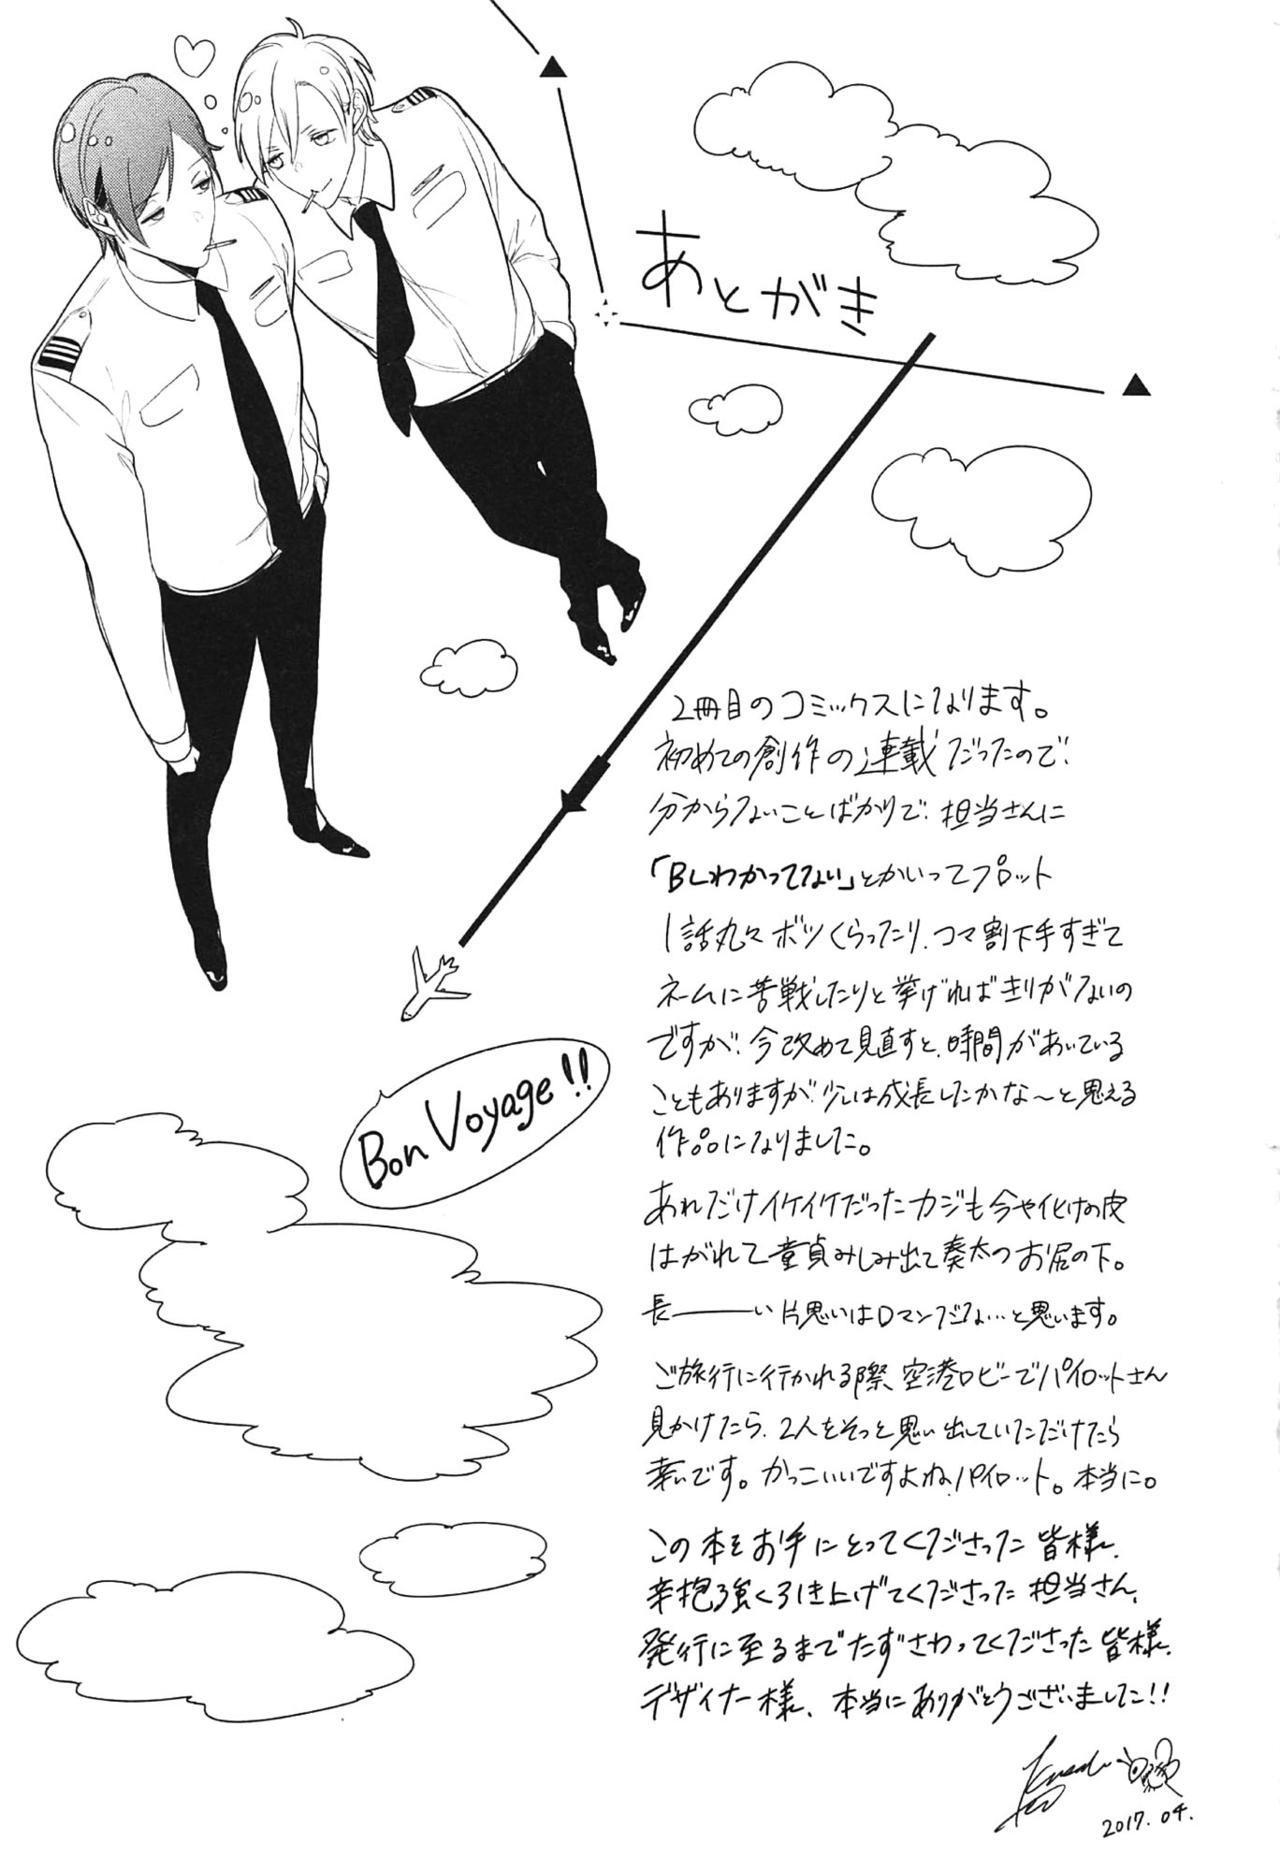 あとがき
2冊目のコミックスになります。
初めての創作の連載だったので、
分からないことばかりで、担当さんに
「BLわかってない」とかいってプロット
1話丸々ボツくらったり、コマ割下手すぎて
ネームに苦戦したりと挙げればきりがないの
ですが、今改めて見直すと、時間があいている
こともありますが、少しは成長したかな～と思える
作品になりました。
あれだけイケイケだったカジも今や化けの皮
はがれて童貞みしみ出て奏太のお尻の下。
長―――い片思いはロマンだな…と思います。
ご旅行に行かれる際、空港ロビーでパイロットさん
見かけたら、2人をそっと思い出していただけたら
幸いです。かっこいいですよねパイロット。本当に。
この本をお手にとってくださった皆様、
辛抱強く引き上げてくださった担当さん、
発行に至るまでたずさわってくださった皆様、
デザイナー様、本当にありがとうございました!!
Bon Voyage!!
2017.04.